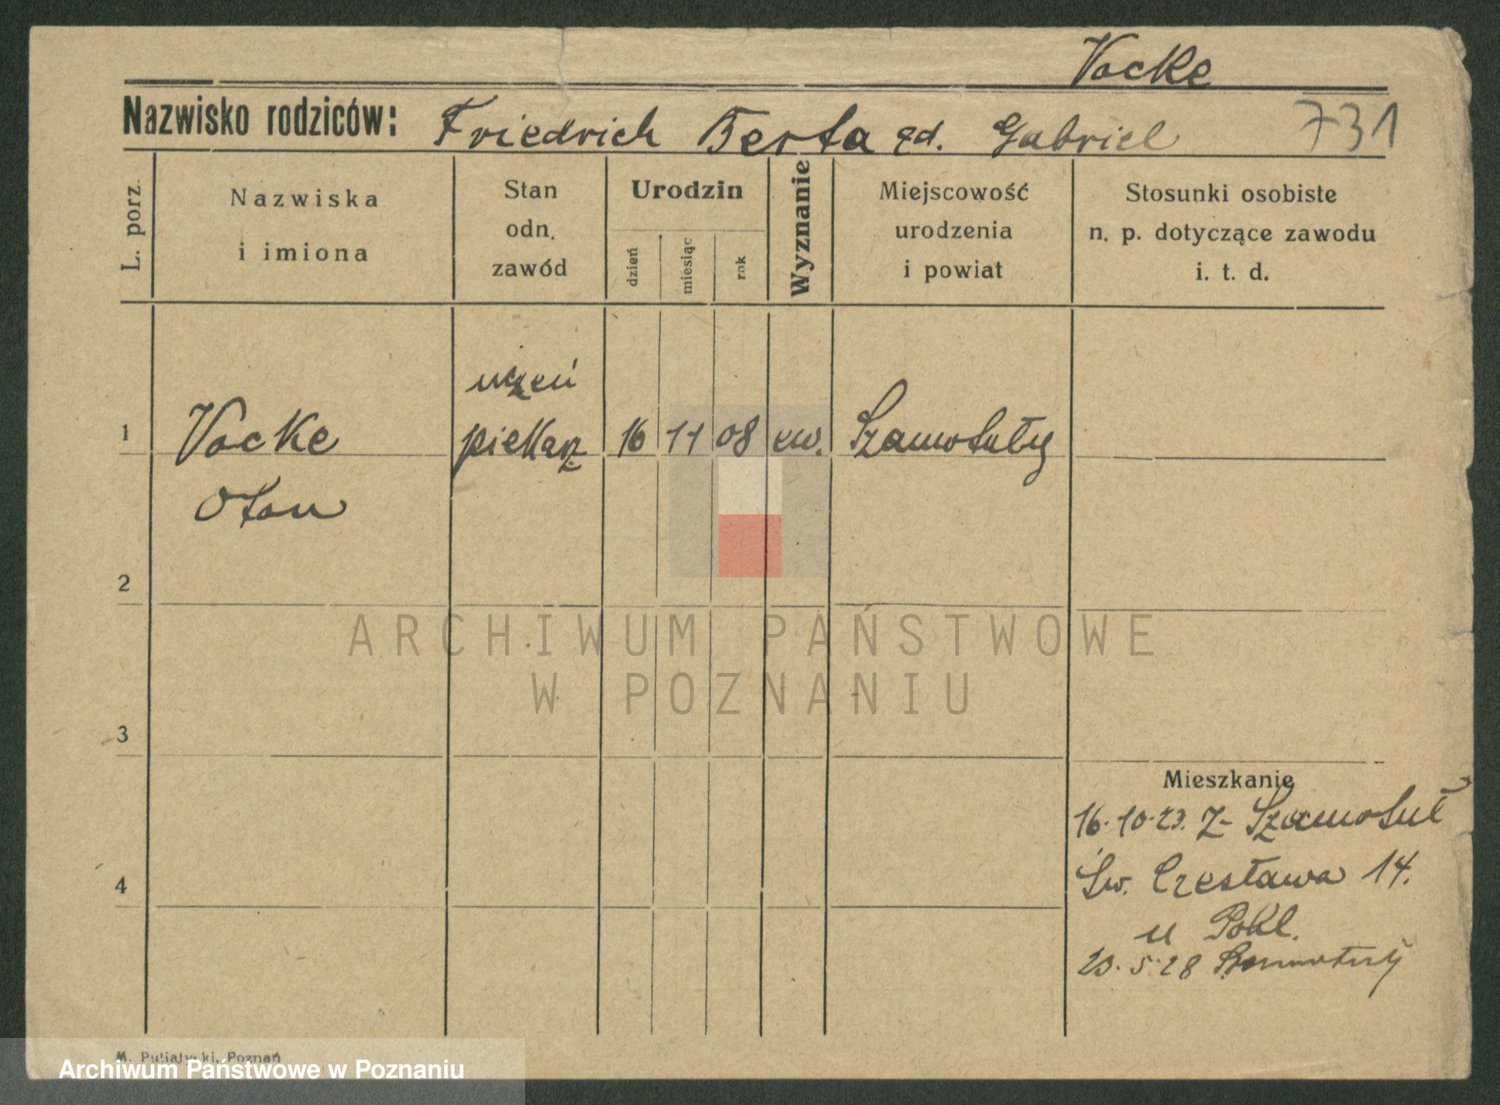 Vocke
Nazwisko rodziców: Friedrich Berta zd. Gabriel 731
L. porz.
Nazwiska
i imiona
Stan
odn.
zawód
Urodzin
dzień
miesiąc
rok
Wyznanie
Miejscowość
urodzenia
i powiat
Stosunki osobiste
n. p. dotyczące zawodu
i. t. d.
uczeń
1 Vocke piekarz 16 11 08 ew. Szamotuły
Oton
2
ARCHIWUM PAŃSTWOWE
W POZNANIU
3
Mieszkanie
16.10.23. z Szamotuł
4
Św. Czesława 14.
u Pokl.
23.5.28 Szamotuły
M. Putiatycki, Poznań
Archiwum Państwowe w Poznaniu